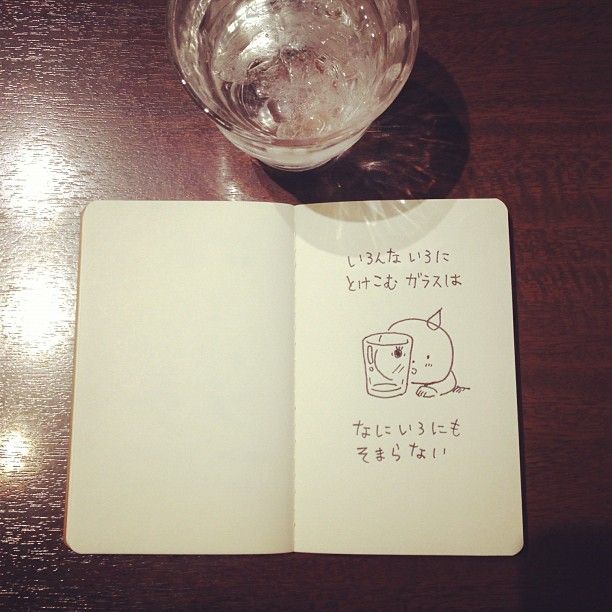 いろんな いろに
とけこむ ガラスは
なに いろにも
そまらない